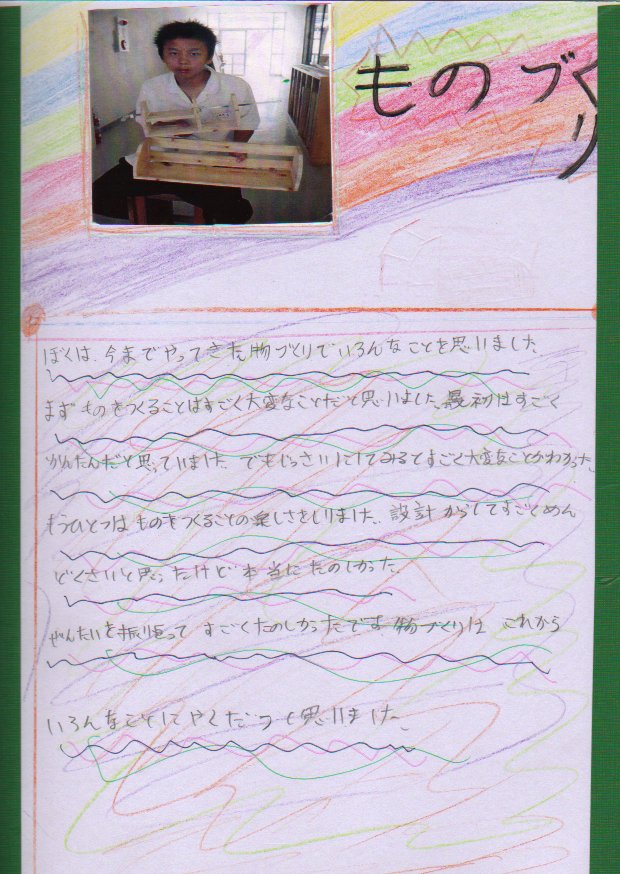 ものづくり
ぼくは、今までやってきた物づくりでいろんなことを思いました
まずものをつくることはすごく大変なことだと思いました。最初はすごく
かんたんだと思っていました。でもじっさいにしてみるとすごく大変なことがわかった。
もうひとつはものをつくることの楽しさをしりました。設計からしてすごくめん
どくさいと思ったけど本当にたのしかった。
ぜんたいを振り返って すごくたのしかったです 物づくりは これから
いろんなことにやくだつと思いました。